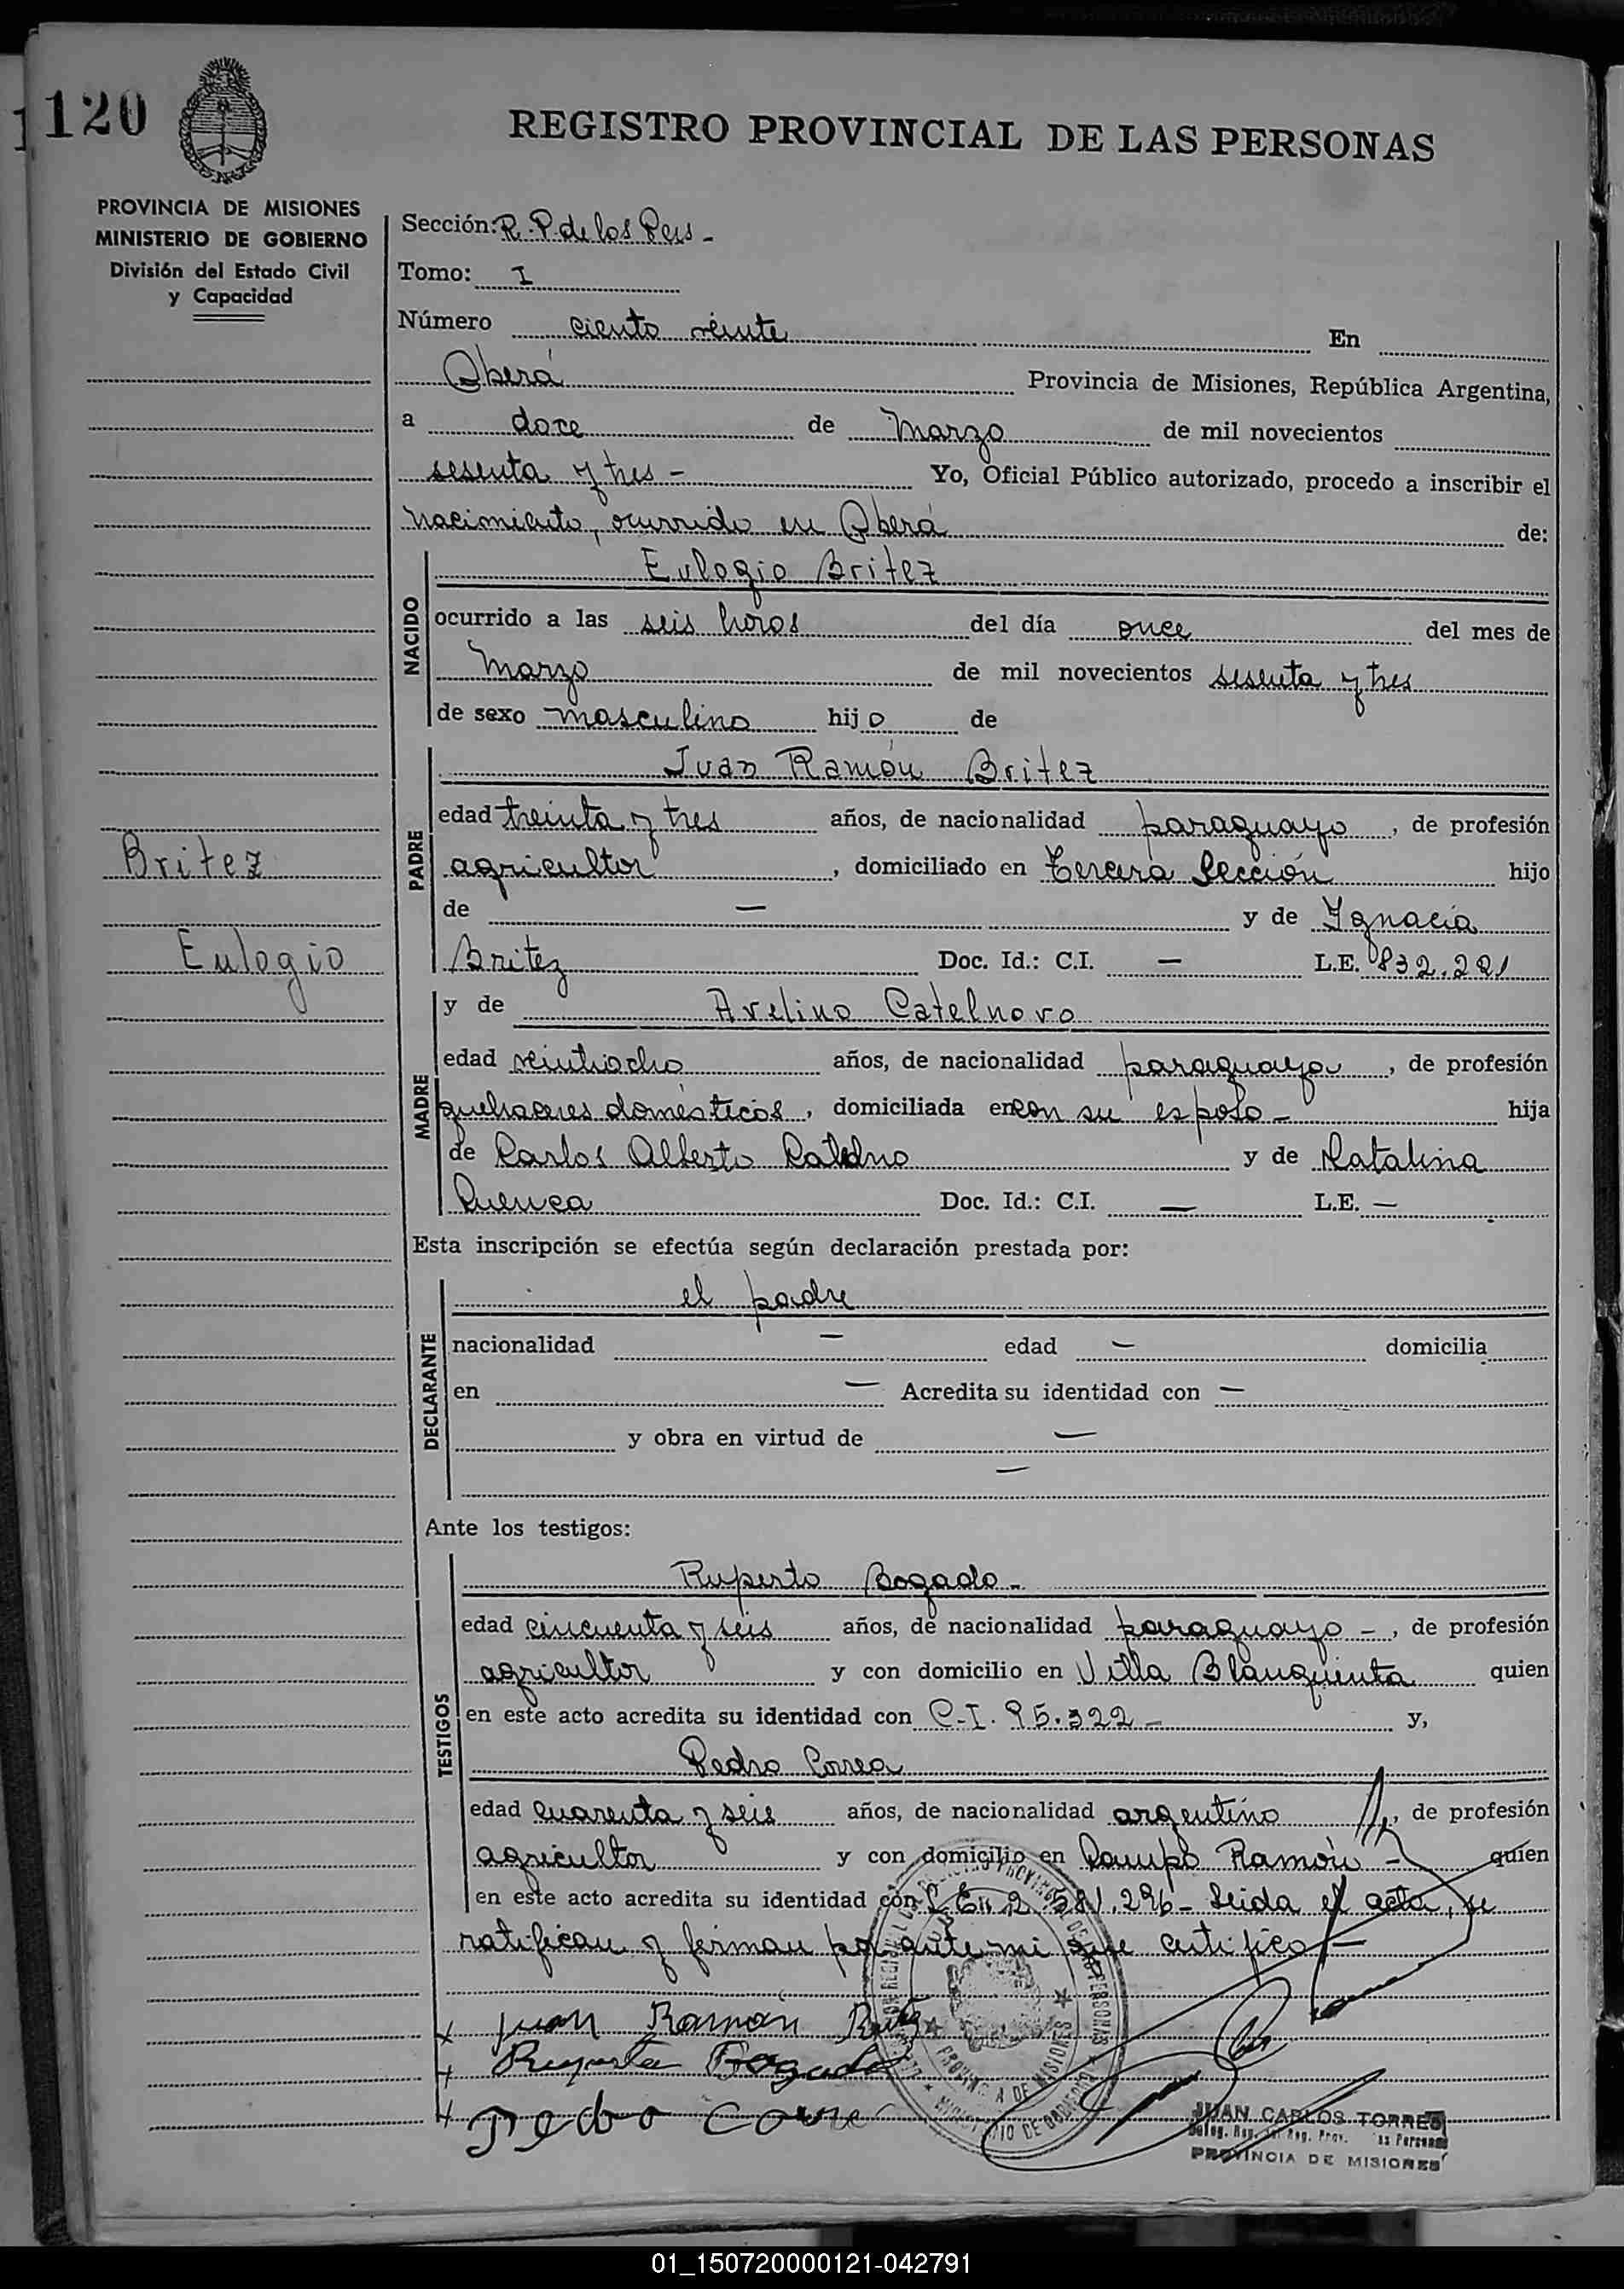 120
REGISTRO PROVINCIAL DE LAS PERSONAS
PROVINCIA DE MISIONES
MINISTERIO DE GOBIERNO
División del Estado Civil
y Capacidad
Sección: R. P. de las Pers -
Tomo: I
Número ciento veinte En
Oberá Provincia de Misiones, República Argentina,
a doce de Marzo de mil novecientos
sesenta y tres - Yo, Oficial Público autorizado, procedo a inscribir el
nacimiento, ocurrido en Oberá de:
NACIDO
Eulogio Britez
ocurrido a las seis horas del día once del mes de
Marzo de mil novecientos sesenta y tres
de sexo masculino hijo de
PADRE
Juan Ramón Britez
edad treinta y tres años, de nacionalidad paraguayo, de profesión
agricultor, domiciliado en Tercera Sección hijo
de — y de Ignacia
Britez Doc. Id.: C.I. — L.E. 832.221
Britez
Eulogio
MADRE
y de Avelina Catelnovo
edad veintiocho años, de nacionalidad paraguaya, de profesión
quehaceres domésticos, domiciliada en con su esposo - hija
de Carlos Alberto y de Catalina
Cuenca Doc. Id.: C.I. — L.E. —
Esta inscripción se efectúa según declaración prestada por:
DECLARANTE
el padre
nacionalidad — edad — domicilia
en — Acredita su identidad con —
y obra en virtud de —
—
Ante los testigos:
TESTIGOS
Ruperto Bogado -
edad cincuenta y seis años, de nacionalidad paraguayo -, de profesión
agricultor y con domicilio en Villa Blanquita quien
en este acto acredita su identidad con C.I. 95.322 - y,
Pedro Correa
edad cuarenta y seis años, de nacionalidad argentino, de profesión
agricultor y con domicilio en Campo Ramón - quien
en este acto acredita su identidad con L.E. 2.581.296 - Leida el acta, se
ratifican y firman por ante mi que certifico. -
x Juan Ramon Britez
x Ruperto Bogado
x Pedro Corre
PROVINCIA DE MISIONES
MINISTERIO DE GOBIERNO
JUAN CARLOS TORRES
PROVINCIA DE MISIONES
01_150720000121-042791